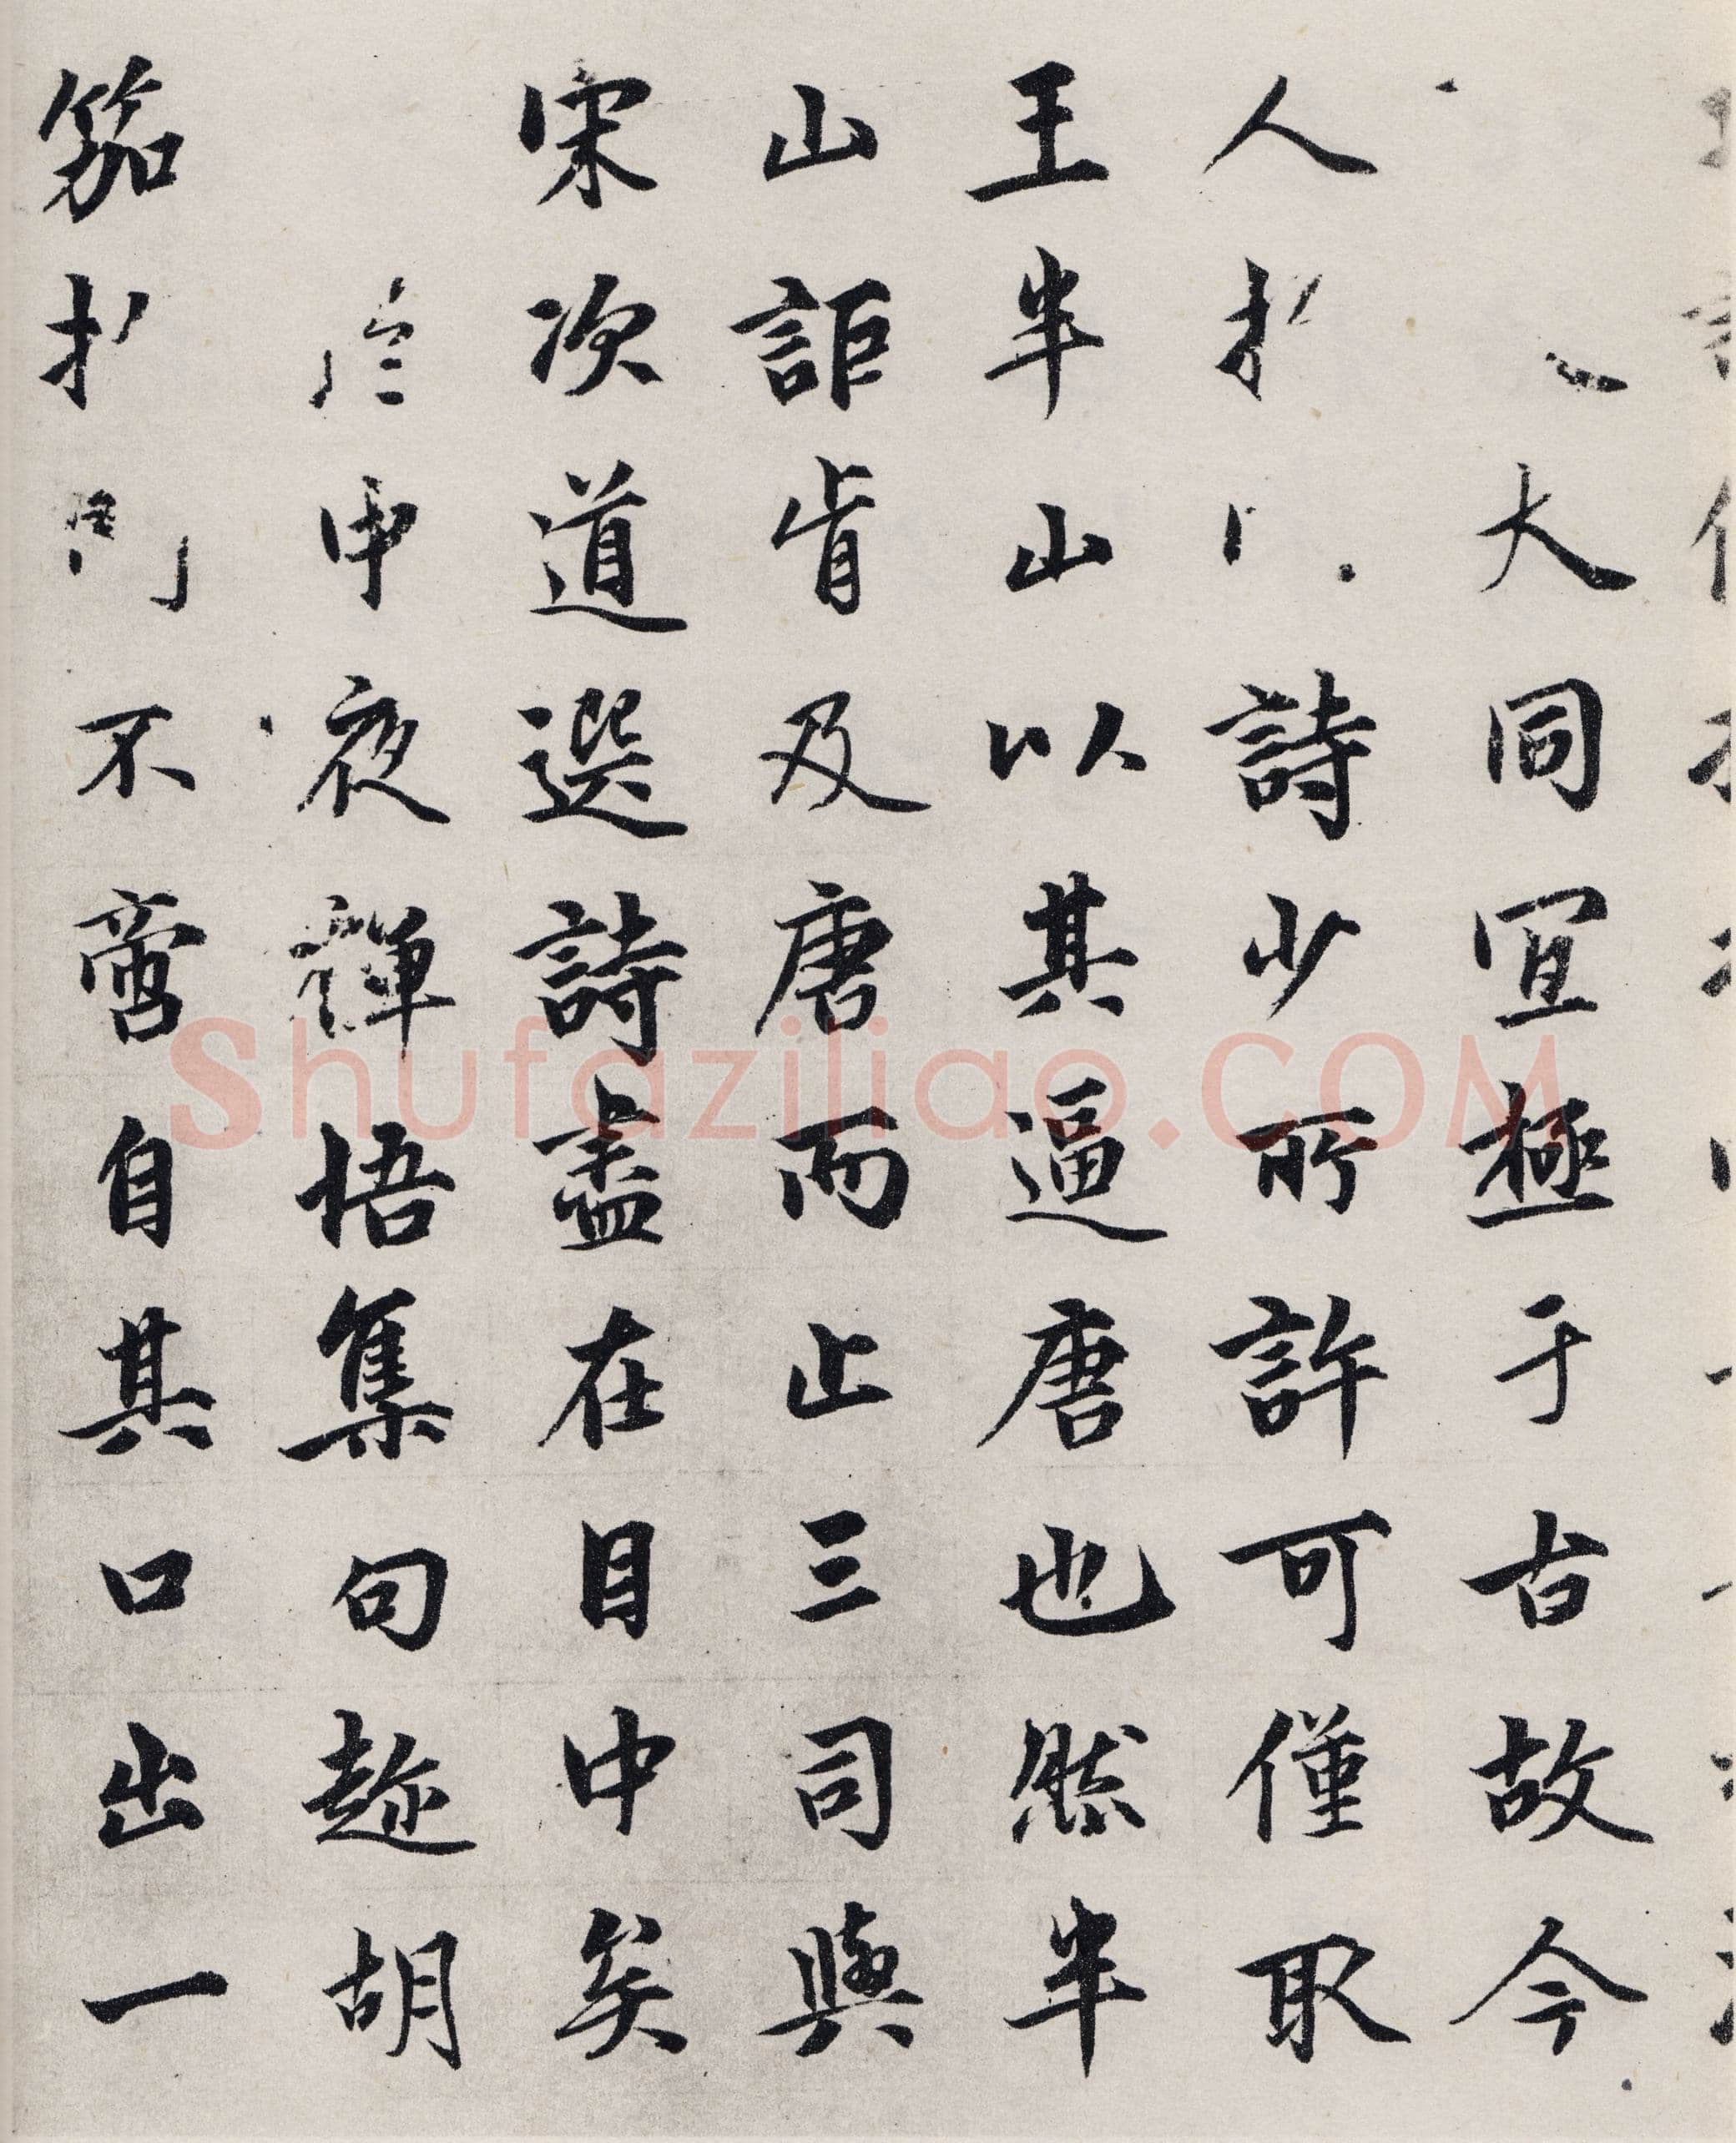 大同冝極于古故今
人詩少所許可僅取
王半山以其逼唐也然半
山詎肯及唐而止三司與
宋次道選詩盡在目中矣
中夜禪悟集句趂胡
笳不啻自其口出一
Shufaziliao.COM